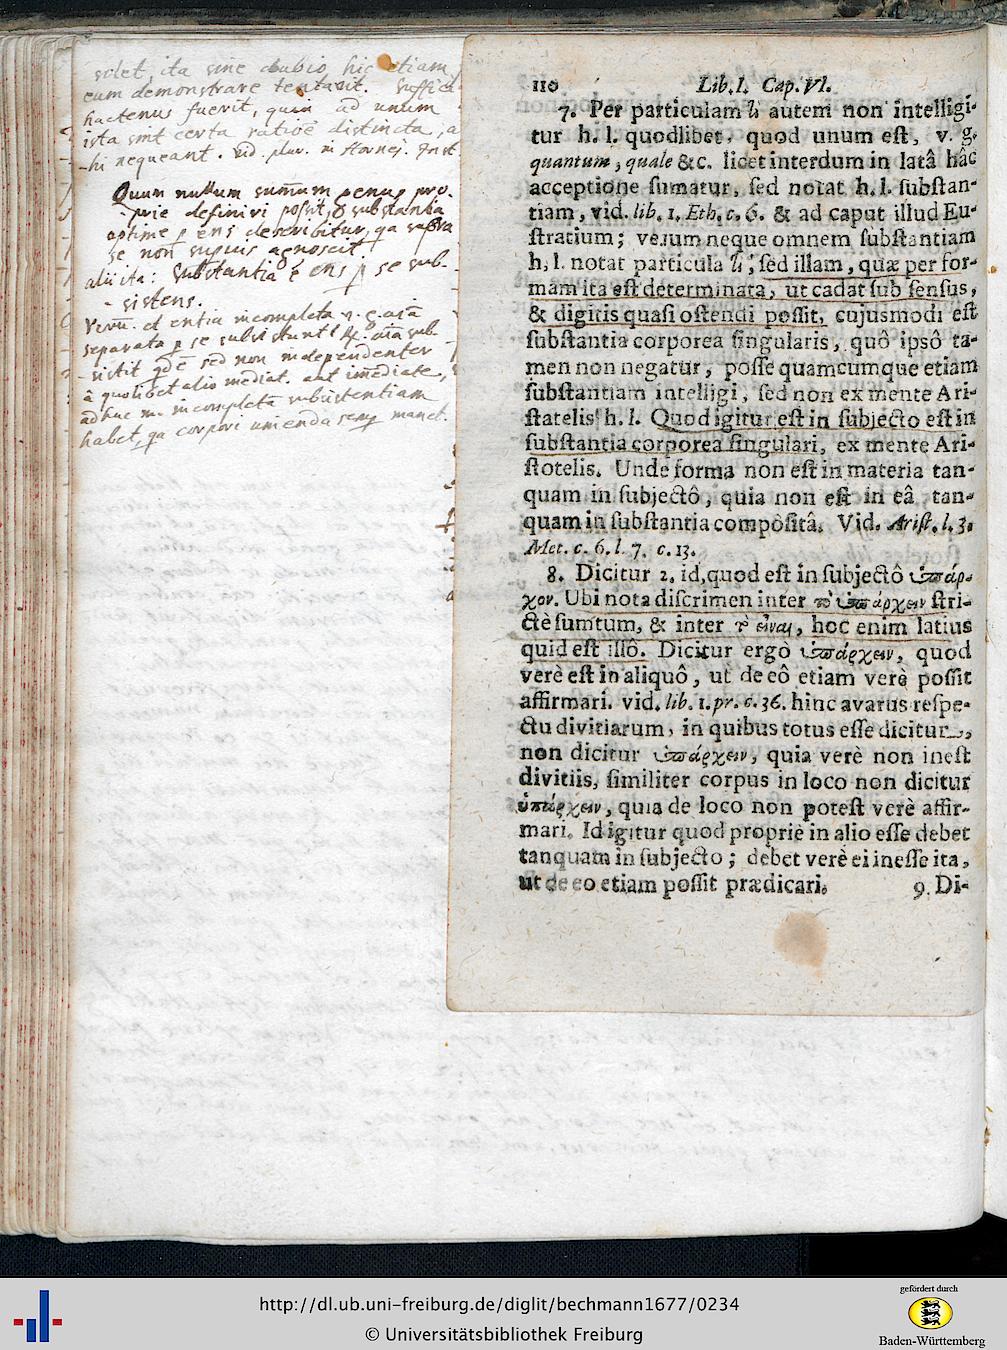 solet, ita sine dubio hic etiam
eum demonstrare tentavit. Suffic
hactenus fuerit, quia ad unum
ista sint certa ratioē distincta, a
hi nequeant. vid. plur. in Hornej.
Quum nullum sum̄um genus pro-
prie definiri possit, & substantia
optime p ens describitur, qa supra
se non superius agnoscit
alii ita: Substantia ē ens p se sub-
sistens.
Verū. et entia incompleta
separata p se subsistunt
sistit qdē sed non independenter
à quolibet alio mediat. aut im̄ediate,
adhuc incompletā subsistentiam
habet, qa corpori unienda semp manet.
110 Lib. I. Cap. VI.
7. Per particulam τὶ autem non intelligi-
tur h. l. quodlibet, quod unum est, v. g.
quantum, quale &c. licet interdum in latâ hâc
acceptione sumatur, sed notat h. l. substan-
tiam, vid. lib. 1. Eth. c. 6. & ad caput illud Eu-
stratium; verum neque omnem substantiam
h, l. notat particula τὶ, sed illam, quæ per for-
mam ita est determinata, ut cadat sub sensus,
& digitis quasi ostendi possit, cujusmodi est
substantia corporea singularis, quô ipsô ta-
men non negatur, posse quamcumque etiam
substantiam intelligi, sed non ex mente Ari-
statelis h. l. Quod igitur est in subjecto est in
substantia corporea singulari, ex mente Ari-
stotelis. Unde forma non est in materia tan-
quam in subjectô, quia non est in eâ, tan-
quam in substantia compositâ. Vid. Arist. l. 3.
Met. c. 6. l. 7. c. 13.
8. Dicitur 2. id, quod est in subjectô ὑπάρ-
χον. Ubi nota discrimen inter τὸ ὑπάρχειν stri-
ctè sumtum, & inter τὸ εἶναι, hoc enim latius
quid est illô. Dicitur ergò ὑπάρχειν, quod
verè est in aliquô, ut de eô etiam verè possit
affirmari. vid. lib. 1. pr. c. 36. hinc avarus respe-
ctu divitiarum, in quibus totus esse dicitur,
non dicitur ὑπάρχειν, quia verè non inest
divitiis, similiter corpus in loco non dicitur
ὑπάρχειν, quia de loco non potest verè affir-
mari. Id igitur quod propriè in alio esse debet
tanquam in subjecto; debet verè ei inesse ita,
ut de eo etiam possit prædicari. 9. Di-
http://dl.ub.uni-freiburg.de/diglit/bechmann1677/0234
© Universitätsbibliothek Freiburg
gefördert durch
Baden-Württemberg